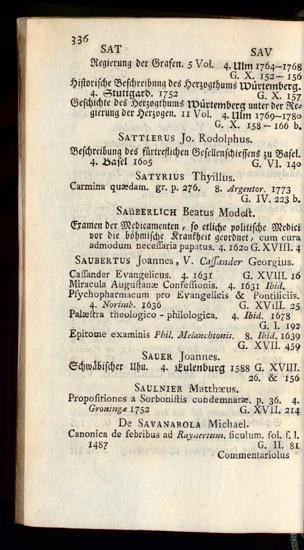 336
SAT SAV
Regierung der Grafen. 5 Vol. 4. Ulm 1764—1768
G. X. 152—156
Historische Beschreibung des Herzogthums Würtemberg.
4. Stuttgard. 1752 G. X. 157
Geschichte des Herzogthums Würtemberg unter der Re-
gierung der Herzogen. 11 Vol. 4. Ulm 1769—1780
G. X. 158—166 b.
SATTLERUS Jo. Rodolphus.
Beschreibung des fürtreflichen Gesellenschiessens zu Basel.
4. Basel 1605 G. VI. 140
SATYRIUS Thyillus.
Carmina quædam. gr. p. 276. 8. Argentor. 1773
G. IV. 223 b.
SAUBERLICH Beatus Modest.
Examen der Medicamenten, so etliche politische Medici
vor die böhmische Krankheit geordnet, cum cura
admodum necessaria papatus. 4. 1620 G. XVIII. 4
SAUBERTUS Joannes, V. Cassander Georgius.
Cassander Evangelicus. 4. 1631 G. XVIII. 16
Miracula Augustanæ Confessionis. 4. 1631 Ibid.
Psychopharmacum pro Evangelicis & Pontificiis.
4. Norimb. 1636 G. XVIII. 25
Palæstra theologico-philologica. 4. Ibid. 1678
G. I. 192
Epitome examinis Phil. Melanchtonis. 8. Ibid. 1639
G. XVII. 459
SAUER Joannes.
Schwäbischer Uhu. 4. Eulenburg 1588 G. XVIII.
26. & 156
SAULNIER Matthæus.
Propositiones a Sorbonistis condemnatæ. p. 36. 4.
Groningæ 1752 G. XVII. 214
De SAVANAROLA Michael.
Canonica de febribus ad Raynerium. siculum. fol. s. l.
1487 G. II. 81
Commentariolus